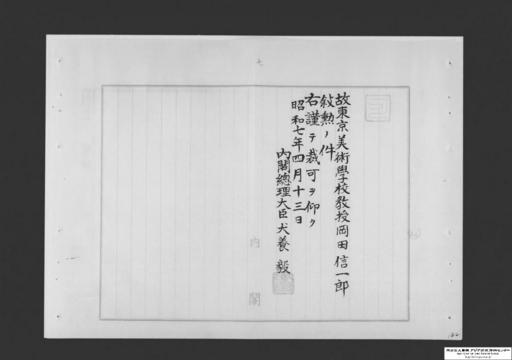 故東京美術學校教授岡田信一郎
敍勲ノ件
右謹テ裁可ヲ仰ク
昭和七年四月十三日
内閣總理大臣犬養毅
内閣